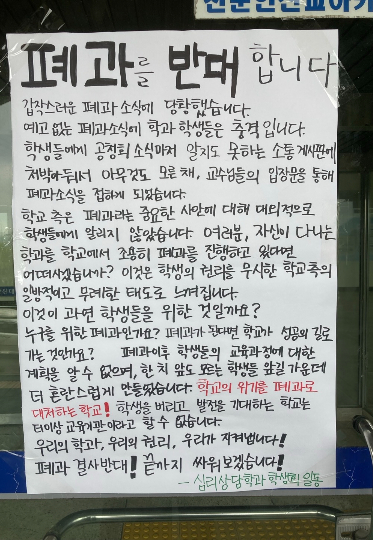 폐과를 반대 합니다
갑작스러운 폐과 소식에 당황했습니다.
예고 없는 폐과소식에 학과 학생들은 충격입니다.
학생들에게 공청회 소식마저 알지도 못하는 소통 게시판에
처박에둬서 아무것도 모른 채, 교수님들의 입장문을 통해
폐과소식을 접하게 되었습니다.
학교 측은 폐과라는 중요한 사안에 대해 대외적으로
학생들에게 알리지 않았습니다. 여러분, 자신이 다니는
학과를 학교에서 조용히 폐과를 진행하고 있다면
어떠시겠습니까? 이것은 학생의 권리를 무시한 학교측의
일방적이고 무례한 태도로 느껴집니다.
이것이 과연 학생들을 위한 것일까요?
누구를 위한 폐과인가요? 폐과가 된다면 학교가 성공의 길로
가는 것인가요? 폐과이후 학생들의 교육과정에 대한
계획을 알 수 없으며, 한 치 앞도 모르는 학생들 앞길 가운데
더 혼란스럽게 만들었습니다. 학교의 위기를 폐과로
대처하는 학교! 학생을 버리고 발전을 기대하는 학교는
더이상 교육기관이라고 할 수 없습니다.
우리의 학과, 우리의 권리, 우리가 지켜냅니다!
폐과 결사반대! 끝까지 싸워보겠습니다!
-- 심리상담학과 학생회 일동